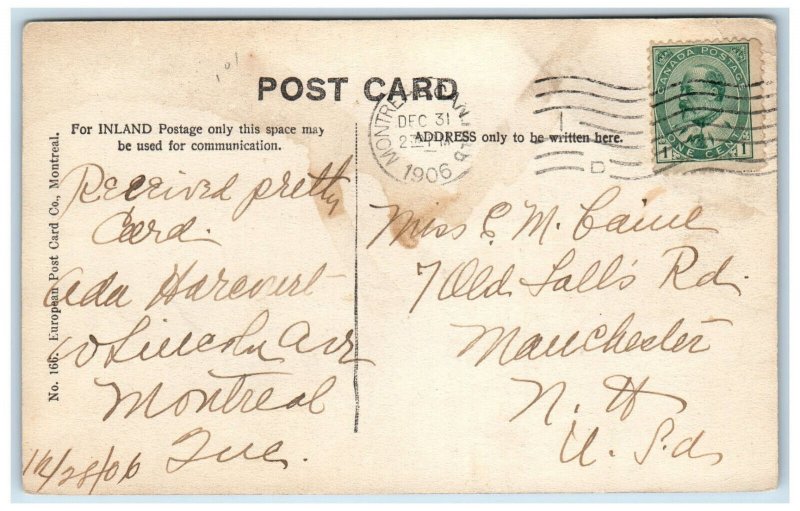 POST CARD
For INLAND Postage only this space may
be used for communication.
ADDRESS only to be written here.
No. 166. European Post Card Co., Montreal.
MONTREAL CAN.
DEC 31
1906
D
CANADA POSTAGE
ONE CENT
1 1
Received pretty
Card.
Ada Harcourt
Lincoln Ave
Montreal
Que.
12/28/06
Miss E. M. Caine
7 Old Falls Rd.
Manchester
N. H
U. S. a